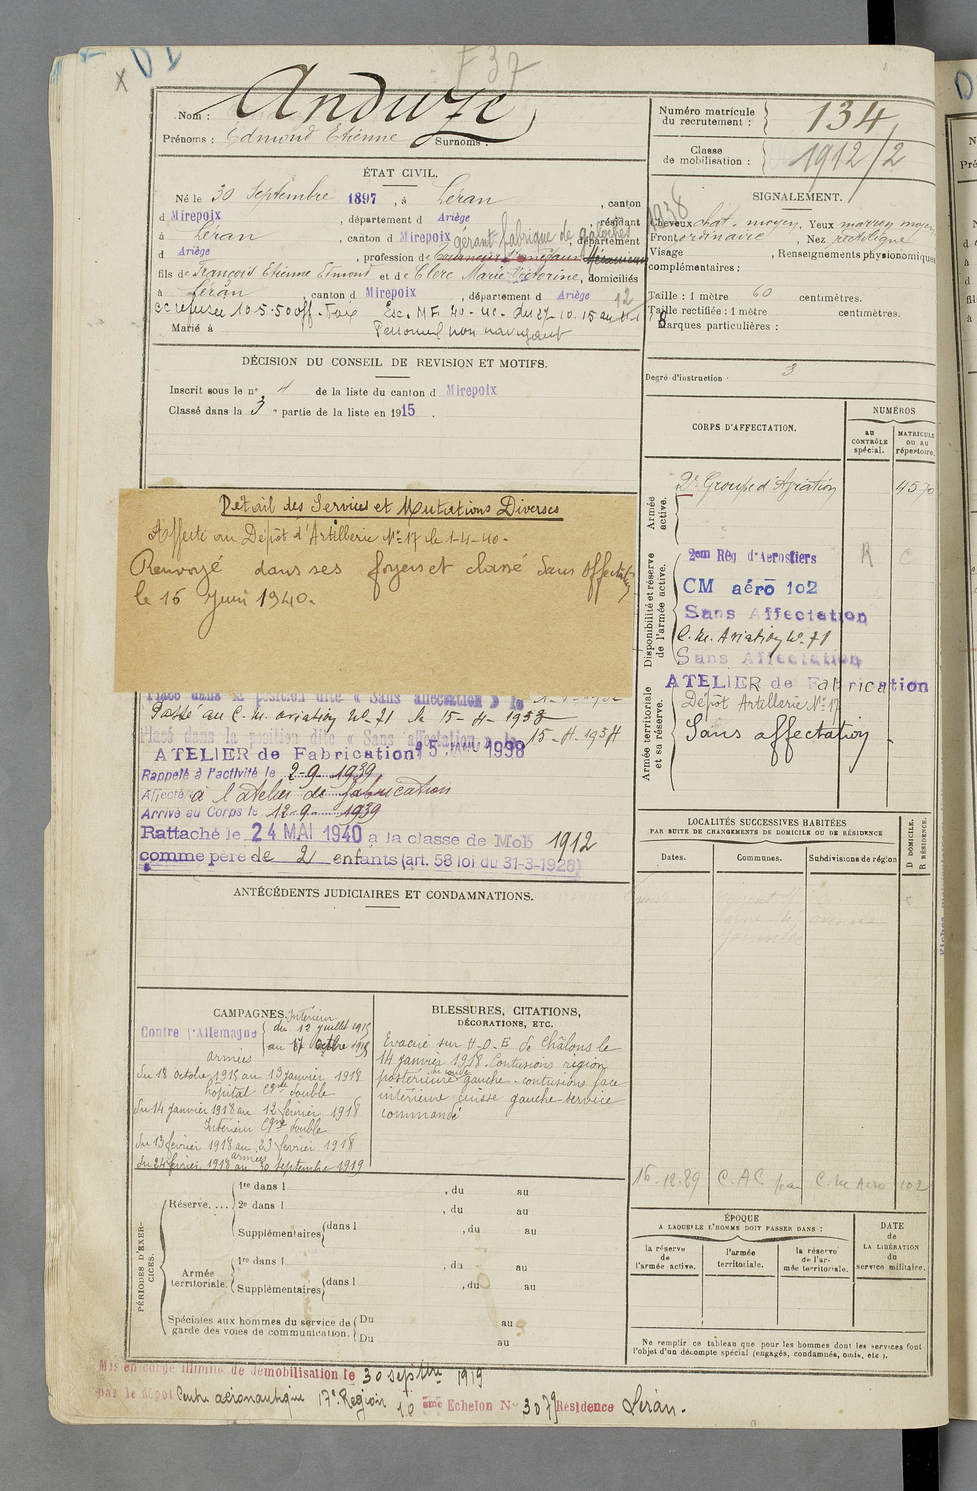 F 37
Nom : Anduze
Prénoms : Edmond Etienne Surnoms :
Numéro matricule du recrutement : 134
Classe de mobilisation : 1912/2
ÉTAT CIVIL.
Né le 30 Septembre 1897, à Léran, canton
d Mirepoix, département d Ariège, résidant
à Léran, canton d Mirepoix, département
gérant fabrique de galoches
d Ariège, profession de
fils de François Etienne Edmond et de Clerc Marie Victorine, domiciliés
à Léran, canton d Mirepoix, département d Ariège
Personnel non navigant
Marié à
SIGNALEMENT.
1938
Cheveux chat. moyen, Yeux marron moyen
Front ordinaire, Nez rectiligne
Visage , Renseignements physionomiques
complémentaires :
Taille : 1 mètre 60 centimètres.
Taille rectifiée : 1 mètre centimètres.
Marques particulières :
Degré d'instruction : 3
DÉCISION DU CONSEIL DE REVISION ET MOTIFS.
Inscrit sous le n° 4 de la liste du canton d Mirepoix
Classé dans la 3e partie de la liste en 1915.
Détail des Services et Mutations Diverses
Affecté au Dépôt d'Artillerie N° 17 le 1-4-40.
Renvoyé dans ses foyers et classé Sans affectation
le 16 Juin 1940.
Placé dans la position dite « Sans affectation » le
Passé au C. M. aviation No 71 le 15-4-193
Placé dans la position dite « Sans affectation » le 15-4-193
ATELIER de Fabrication 15 JANV 1938
Rappelé à l'activité le 2-9-1939
Affecté à l'atelier de fabrication
Arrivé au Corps le 12-9-1939
Rattaché le 24 MAI 1940 à la classe de Mob 1912
comme père de 2 enfants (art. 58 loi du 31-3-1928)
CORPS D'AFFECTATION.
NUMÉROS
au CONTRÔLE spécial.
MATRICULE ou au répertoire.
Armée active.
2e Groupe d'Aviation 4570
Disponibilité et réserve de l'armée active.
2em Rég d'Aérostiers R C
CM aéro 102
Sans Affectation
C. M. Aviation No 71
Sans Affectation
Armée territoriale et sa réserve.
ATELIER de Fabrication
Dépôt Artillerie N° 17
Sans affectation
LOCALITÉS SUCCESSIVES HABITÉES
PAR SUITE DE CHANGEMENTS DE DOMICILE OU DE RÉSIDENCE
Dates. Communes. Subdivisions de région
D DOMICILE. R RÉSIDENCE.
16-12-29 C.M. Aéro 102
ANTÉCÉDENTS JUDICIAIRES ET CONDAMNATIONS.
CAMPAGNES.
Contre l'Allemagne
Intérieur
du 12 juillet 1915
au 17 octobre 1915
armées
du 18 octobre 1915 au 13 janvier 1918
hôpital Cgne double
du 14 janvier 1918 au 12 février 1918
Intérieur Cgne double
du 13 février 1918 au 23 février 1918
armées
du 24 février 1918 au 30 septembre 1919
BLESSURES, CITATIONS,
DÉCORATIONS, ETC.
Evacué sur H.O.E de Châlons le
14 janvier 1918. Contusions région
postérieure du coude gauche - contusions face
intérieure cuisse gauche - service
commandé
PÉRIODES D'EXERCICES.
Réserve....
1re dans l , du au
2e dans l , du au
Supplémentaires dans l , du au
Armée territoriale.
1re dans l , du au
Supplémentaires dans l , du au
Spéciales aux hommes du service de garde des voies de communication.
Du au
Du au
ÉPOQUE
A LAQUELLE L'HOMME DOIT PASSER DANS :
la réserve de l'armée active.
l'armée territoriale.
la réserve de l'armée territoriale.
DATE
de
LA LIBÉRATION
du
service militaire.
Ne remplir ce tableau que pour les hommes dont les services font
l'objet d'un décompte spécial (engagés, condamnés, omis, etc.).
Mis en congé illimité de démobilisation le 30 septbre 1919
par le dépôt Centre aéronautique 17e Région ème Echelon No 307 Résidence Léran.